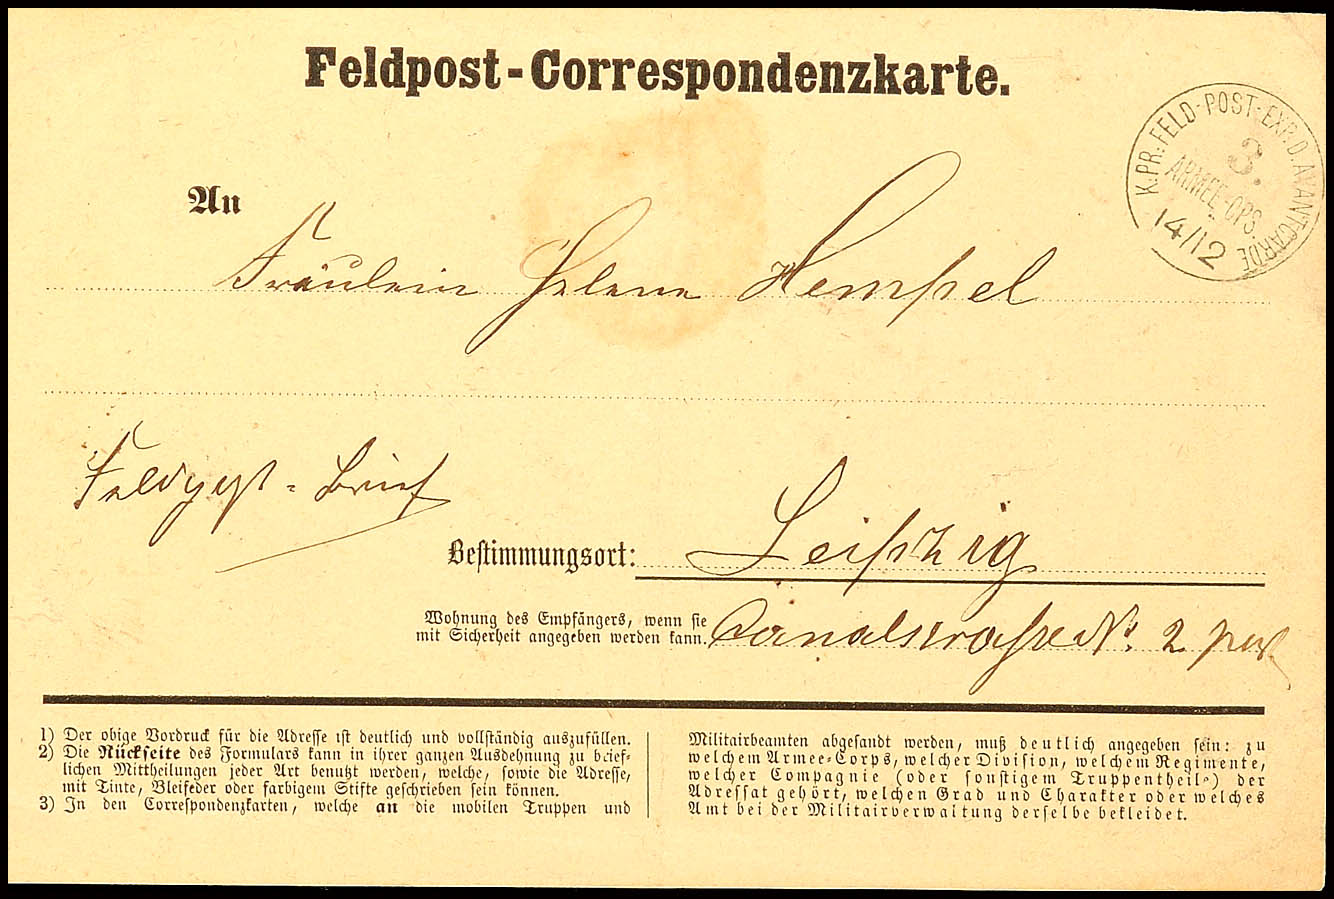 Feldpost-Correspondenzkarte.
K.PR.FELD-POST-EXP.D.AVANTGARDE
3.
ARMEE-CPS.
14/12
An
Fräulein Helene Hempel
Feldpost-Brief
Bestimmungsort: Leipzig
Wohnung des Empfängers, wenn sie
mit Sicherheit angegeben werden kann. Canalstrasse Nº. 2
1) Der obige Vordruck für die Adresse ist deutlich und vollständig auszufüllen.
2) Die Rückseite des Formulars kann in ihrer ganzen Ausdehnung zu brief-
lichen Mittheilungen jeder Art benutzt werden, welche, sowie die Adresse,
mit Tinte, Bleifeder oder farbigem Stifte geschrieben sein können.
3) In den Correspondenzkarten, welche an die mobilen Truppen und
Militairbeamten abgesandt werden, muß deutlich angegeben sein: zu
welchem Armee-Corps, welcher Division, welchem Regimente,
welcher Compagnie (oder sonstigem Truppentheile) der
Adressat gehört, welchen Grad und Charakter oder welches
Amt bei der Militairverwaltung derselbe bekleidet.